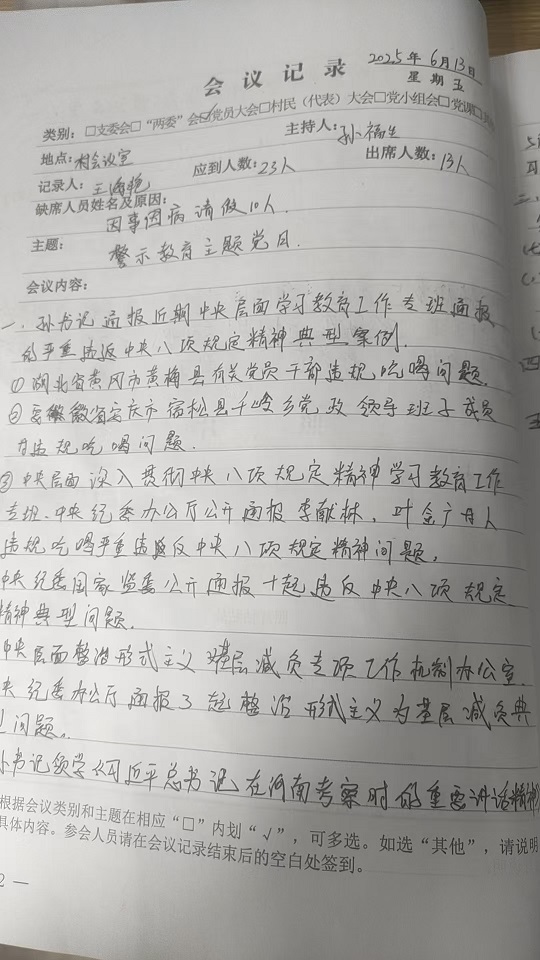 2025年6月13日
会议记录
星期五
类别：□支委会□“两委”会☑党员大会□村民（代表）大会□党小组会□党课□
地点：村会议室 主持人：孙福生
记录人：王海艳 应到人数：23人 出席人数：13人
缺席人员姓名及原因：
因事因病请假10人.
主题：警示教育主题党日.
会议内容：
一、孙书记通报近期中央层面学习教育工作专班通报
的严重违反中央八项规定精神典型案例.
①湖北省黄冈市黄梅县有关党员干部违规吃喝问题.
②安徽省安庆市宿松县千岭乡党政领导班子成员
违规吃喝问题.
③中央层面深入贯彻中央八项规定精神学习教育工作
专班.中央纪委办公厅公开通报李献林，叶金广
违规吃喝严重违反中央八项规定精神问题，
中央纪委国家监委公开通报十起违反中央八项规定
精神典型问题.
中央层面整治形式主义 基层减负专项工作机制办公室.
央纪委办公厅通报3起整治形式主义为基层减负典
问题。
书记领学《习近平总书记在河南考察时的重要讲话精神》
根据会议类别和主题在相应“□”内划“√”，可多选。如选“其他”，请说明
具体内容。参会人员请在会议记录结束后的空白处签到。
2 —